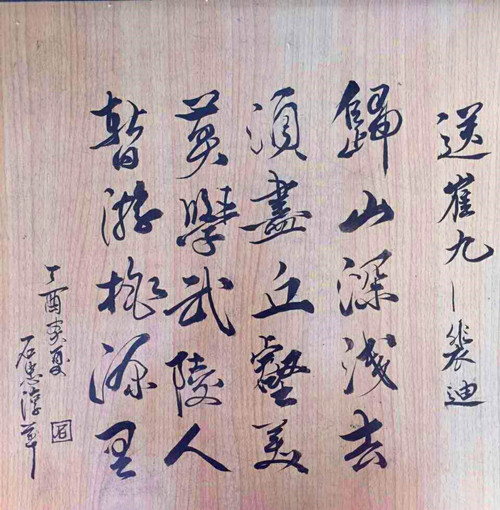 送崔九—裴迪
歸山深浅去
須盡丘壑美
莫學武陵人
暫游桃源里
丁酉炎夏
石忠淳草
石